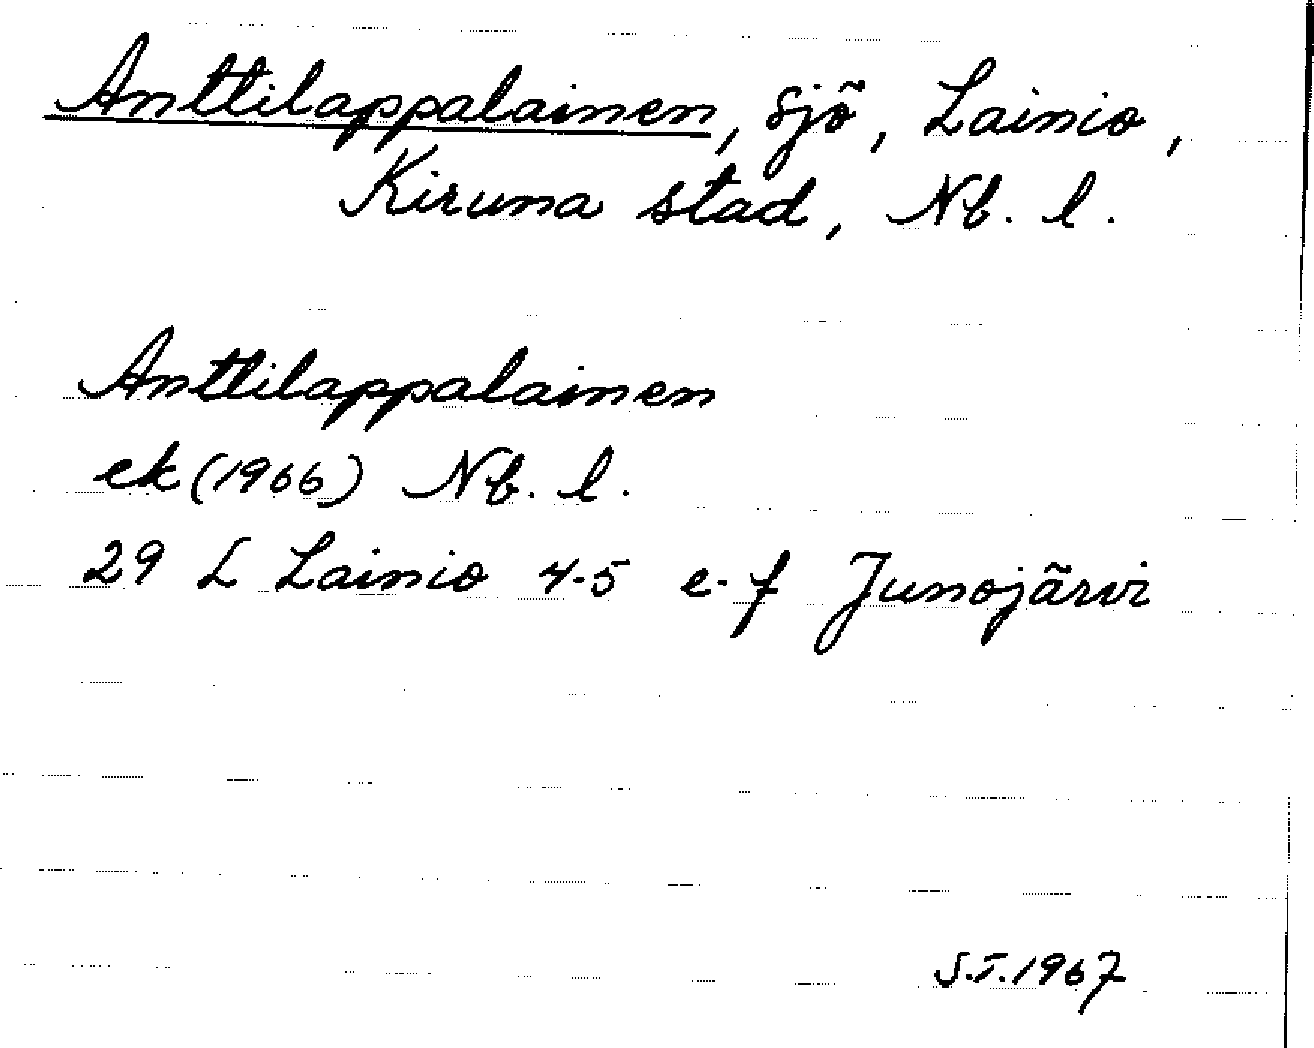 Anttilappalainen, sjö, Lainio,
Kiruna stad, Nb. l.
Anttilappalainen
ek (1966) Nb. l.
29 L Lainio 4-5 e-f Junojärvi
S.T. 1967